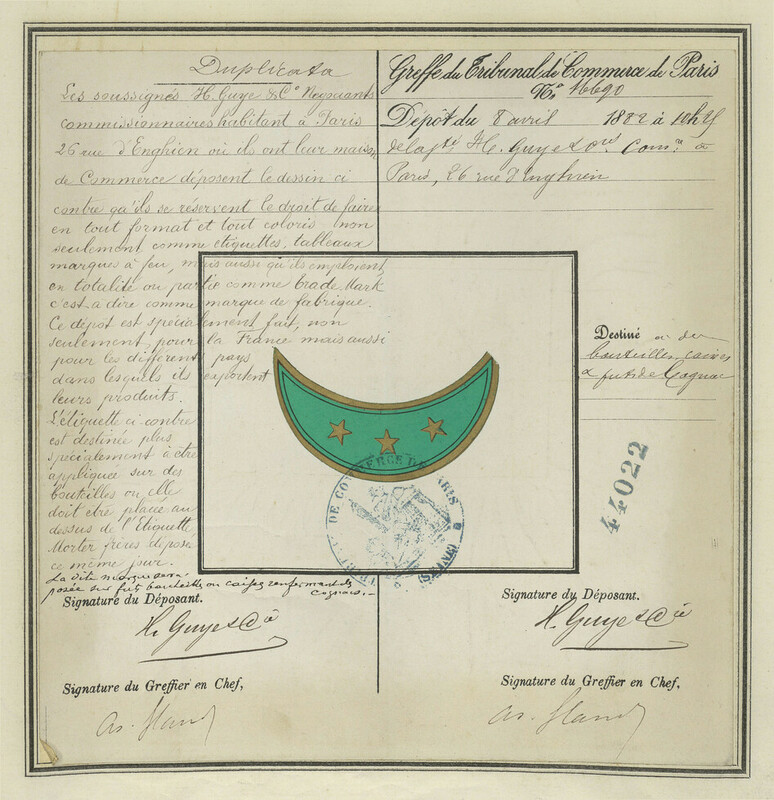 Duplicata
Les soussignés H. Guye & Cº Négociants
commissionnaires habitant à Paris
26 rue d'Enghien où ils ont leur maison
de Commerce déposent le dessin ci
contre qu'ils se réservent le droit de faire
en tout format et tout coloris non
seulement comme étiquettes, tableaux
marques à feu, mais aussi qu'ils emploient
en totalité ou partie comme Trade Mark
c'est à dire comme marque de fabrique.
Ce dépot est spécialement fait, non
seulement pour la France mais aussi
pour les différents pays
dans lesquels ils exportent
leurs produits.
L'étiquette ci-contre
est destinée plus
spécialement à être
appliquée sur des
bouteilles ou elle
doit etre placée au
dessus de l'Etiquette
Morter frères déposée
ce même jour.
La dite marque sera
posée sur fûts bouteilles ou caisses renfermant des
cognacs.
Signature du Déposant.
H. Guye & Cie
Signature du Greffier en Chef,
Greffe du Tribunal de Commerce de Paris
Nº 16690
Dépôt du 8 avril 1882 à 10h25
de la sté H. Guye & Cie Comre à
Paris, 26 rue d'Enghien
Destiné à des
bouteilles, caisses
& futs de Cognac
44022
COMMERCE DE PARIS
Signature du Déposant.
H. Guye & Cie
Signature du Greffier en Chef,